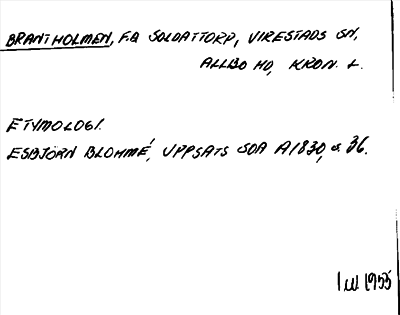 BRANTHOLMEN, F.Q SOLDATTORP, VIRESTADS SN,
ALLBO HD, KRON. L.
ETYMOLOGI.
ESBJÖRN BLOHMÉ, UPPSATS SOA A1830, s. 36.
1 1955